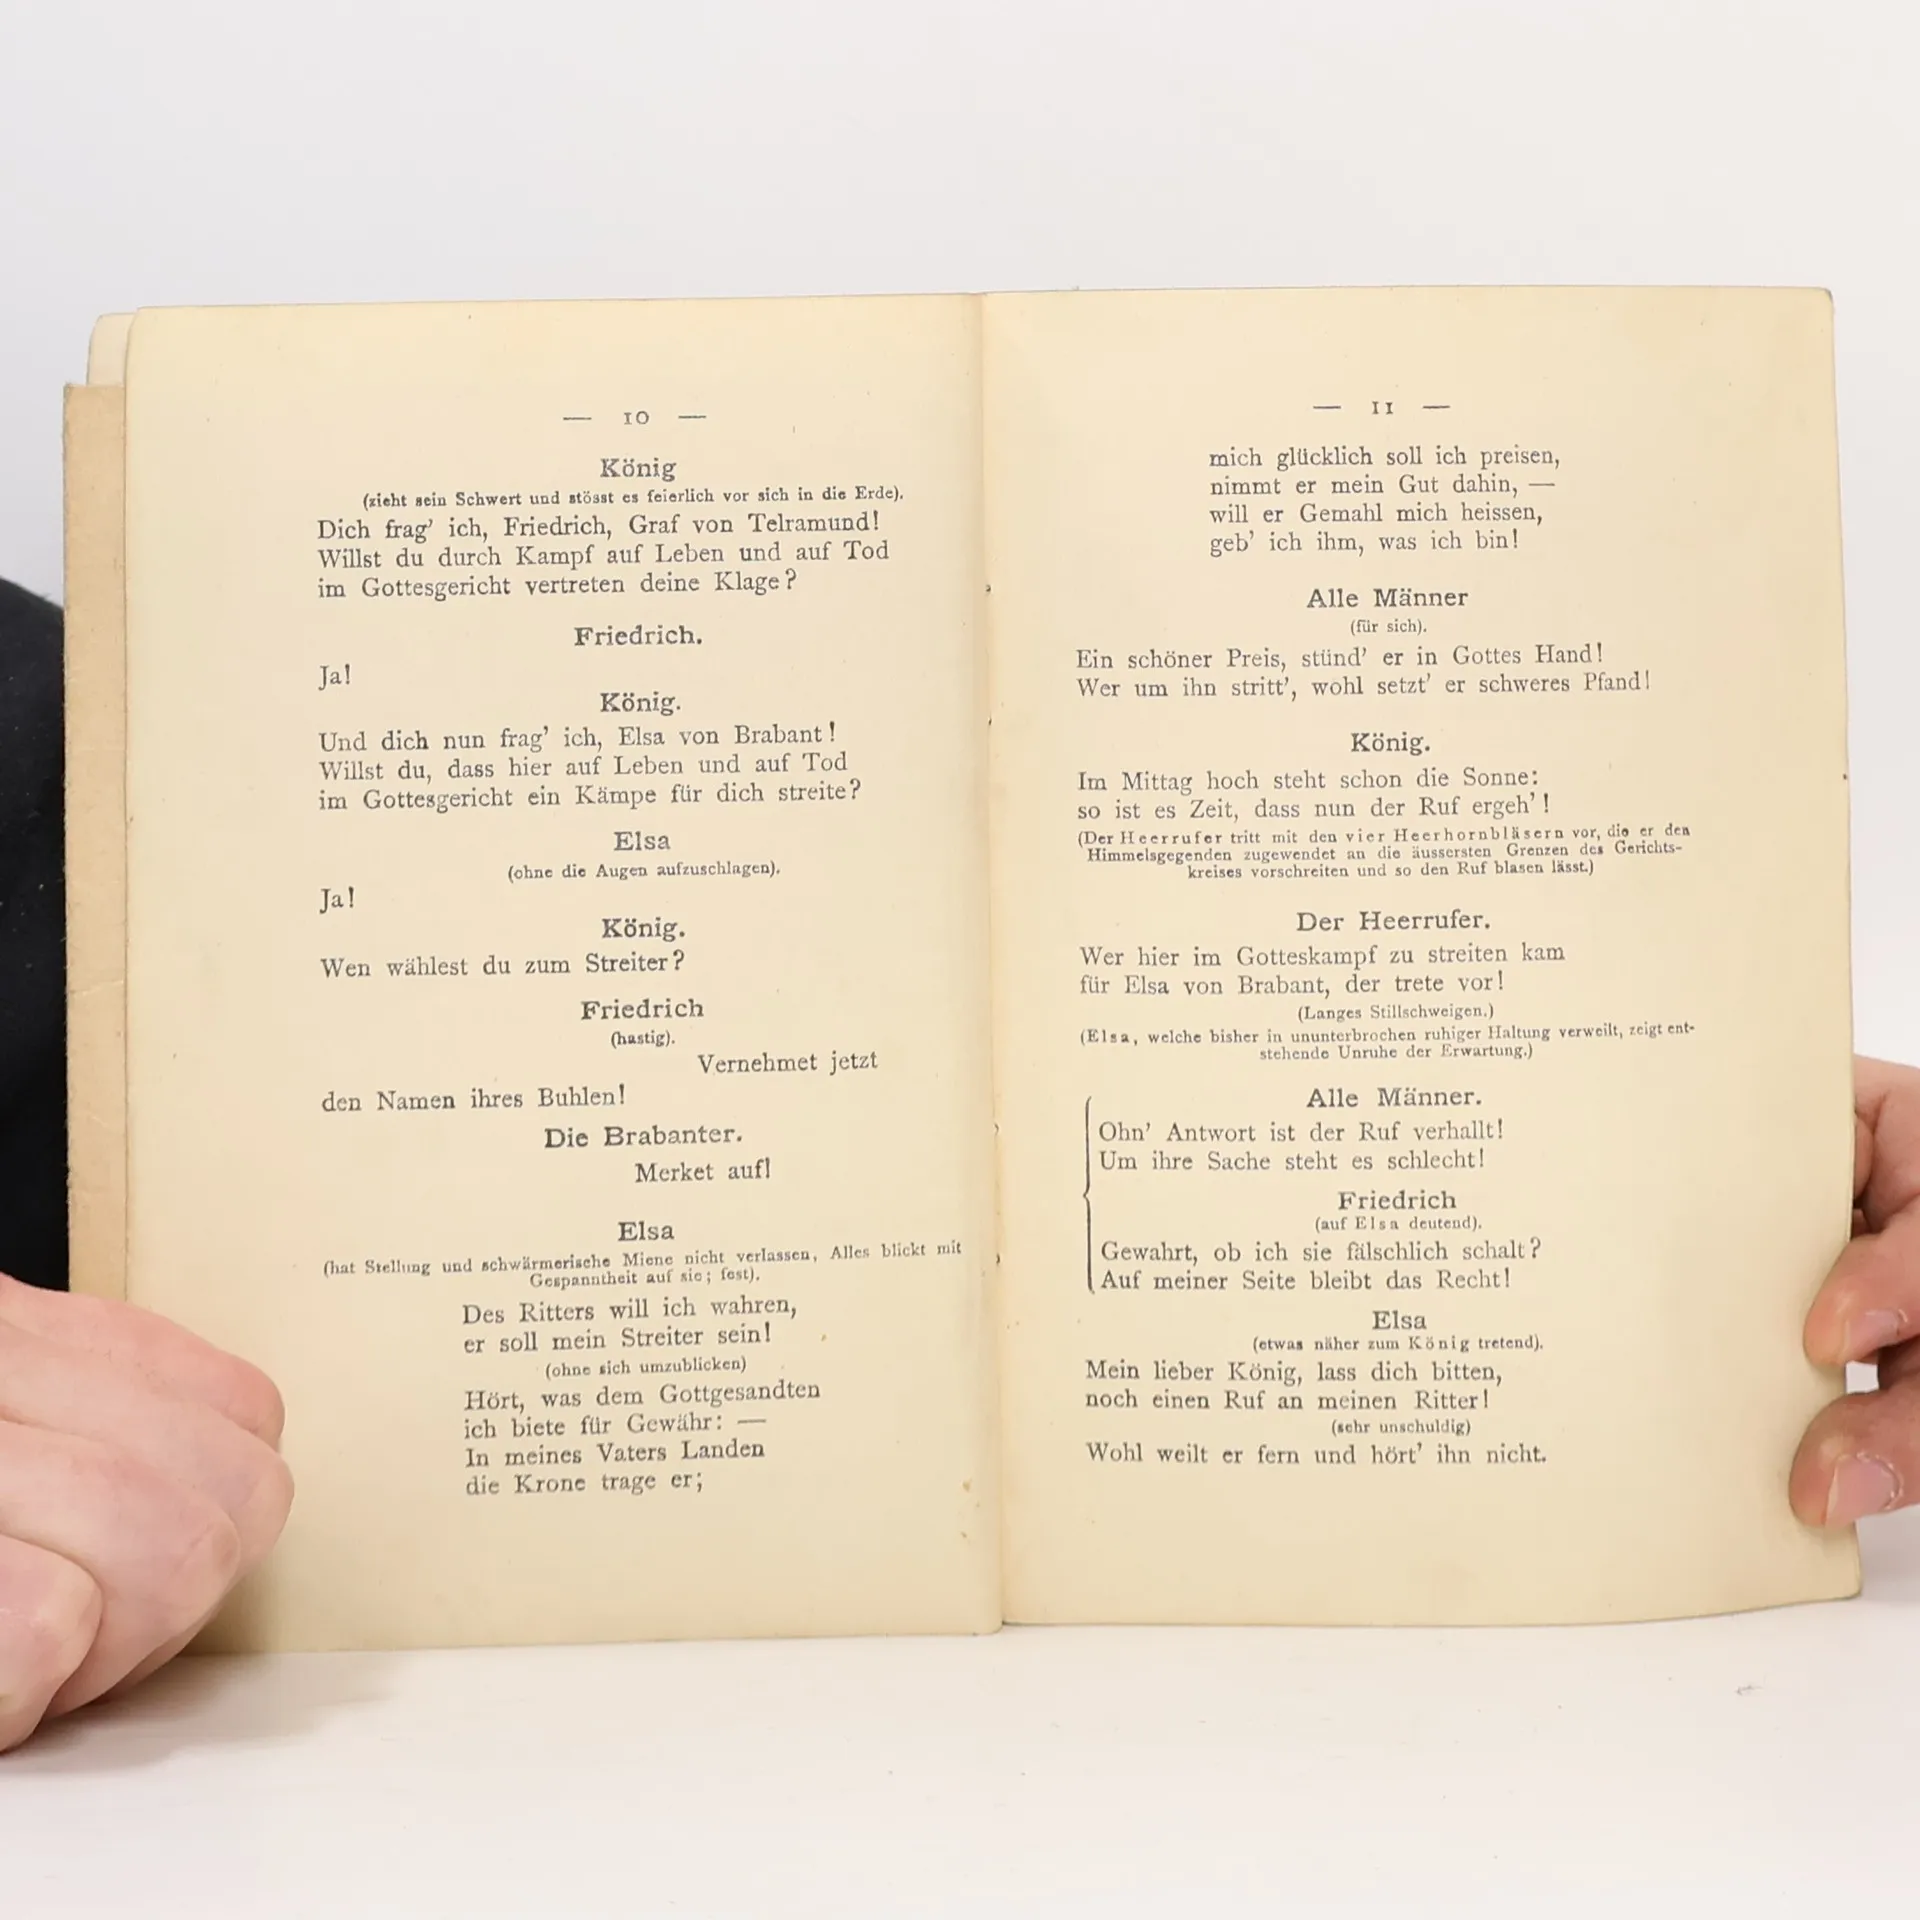 — 10 —
König
(zieht sein Schwert und stösst es feierlich vor sich in die Erde).
Dich frag' ich, Friedrich, Graf von Telramund!
Willst du durch Kampf auf Leben und auf Tod
im Gottesgericht vertreten deine Klage?
Friedrich.
Ja!
König.
Und dich nun frag' ich, Elsa von Brabant!
Willst du, dass hier auf Leben und auf Tod
im Gottesgericht ein Kämpe für dich streite?
Elsa
(ohne die Augen aufzuschlagen).
Ja!
König.
Wen wählest du zum Streiter?
Friedrich
(hastig).
Vernehmet jetzt
den Namen ihres Buhlen!
Die Brabanter.
Merket auf!
Elsa
(hat Stellung und schwärmerische Miene nicht verlassen, Alles blickt mit
Gespanntheit auf sie; fest).
Des Ritters will ich wahren,
er soll mein Streiter sein!
(ohne sich umzublicken)
Hört, was dem Gottgesandten
ich biete für Gewähr: —
In meines Vaters Landen
die Krone trage er;
— 11 —
mich glücklich soll ich preisen,
nimmt er mein Gut dahin, —
will er Gemahl mich heissen,
geb' ich ihm, was ich bin!
Alle Männer
(für sich).
Ein schöner Preis, stünd' er in Gottes Hand!
Wer um ihn stritt', wohl setzt' er schweres Pfand!
König.
Im Mittag hoch steht schon die Sonne:
so ist es Zeit, dass nun der Ruf ergeh'!
(Der Heerrufer tritt mit den vier Heerhornbläsern vor, die er den
Himmelsgegenden zugewendet an die äussersten Grenzen des Gerichts-
kreises vorschreiten und so den Ruf blasen lässt.)
Der Heerrufer.
Wer hier im Gotteskampf zu streiten kam
für Elsa von Brabant, der trete vor!
(Langes Stillschweigen.)
(Elsa, welche bisher in ununterbrochen ruhiger Haltung verweilt, zeigt ent-
stehende Unruhe der Erwartung.)
Alle Männer.
Ohn' Antwort ist der Ruf verhallt!
Um ihre Sache steht es schlecht!
Friedrich
(auf Elsa deutend).
Gewahrt, ob ich sie fälschlich schalt?
Auf meiner Seite bleibt das Recht!
Elsa
(etwas näher zum König tretend).
Mein lieber König, lass dich bitten,
noch einen Ruf an meinen Ritter!
(sehr unschuldig)
Wohl weilt er fern und hört' ihn nicht.